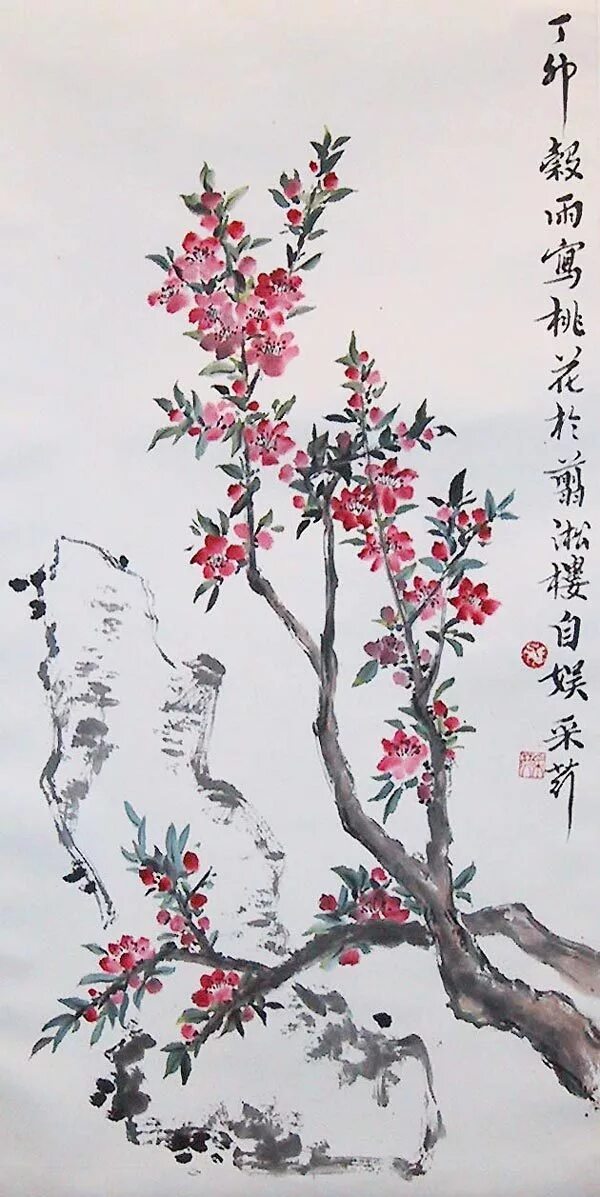 丁卯穀雨寫桃花於翦淞樓自娱采芹